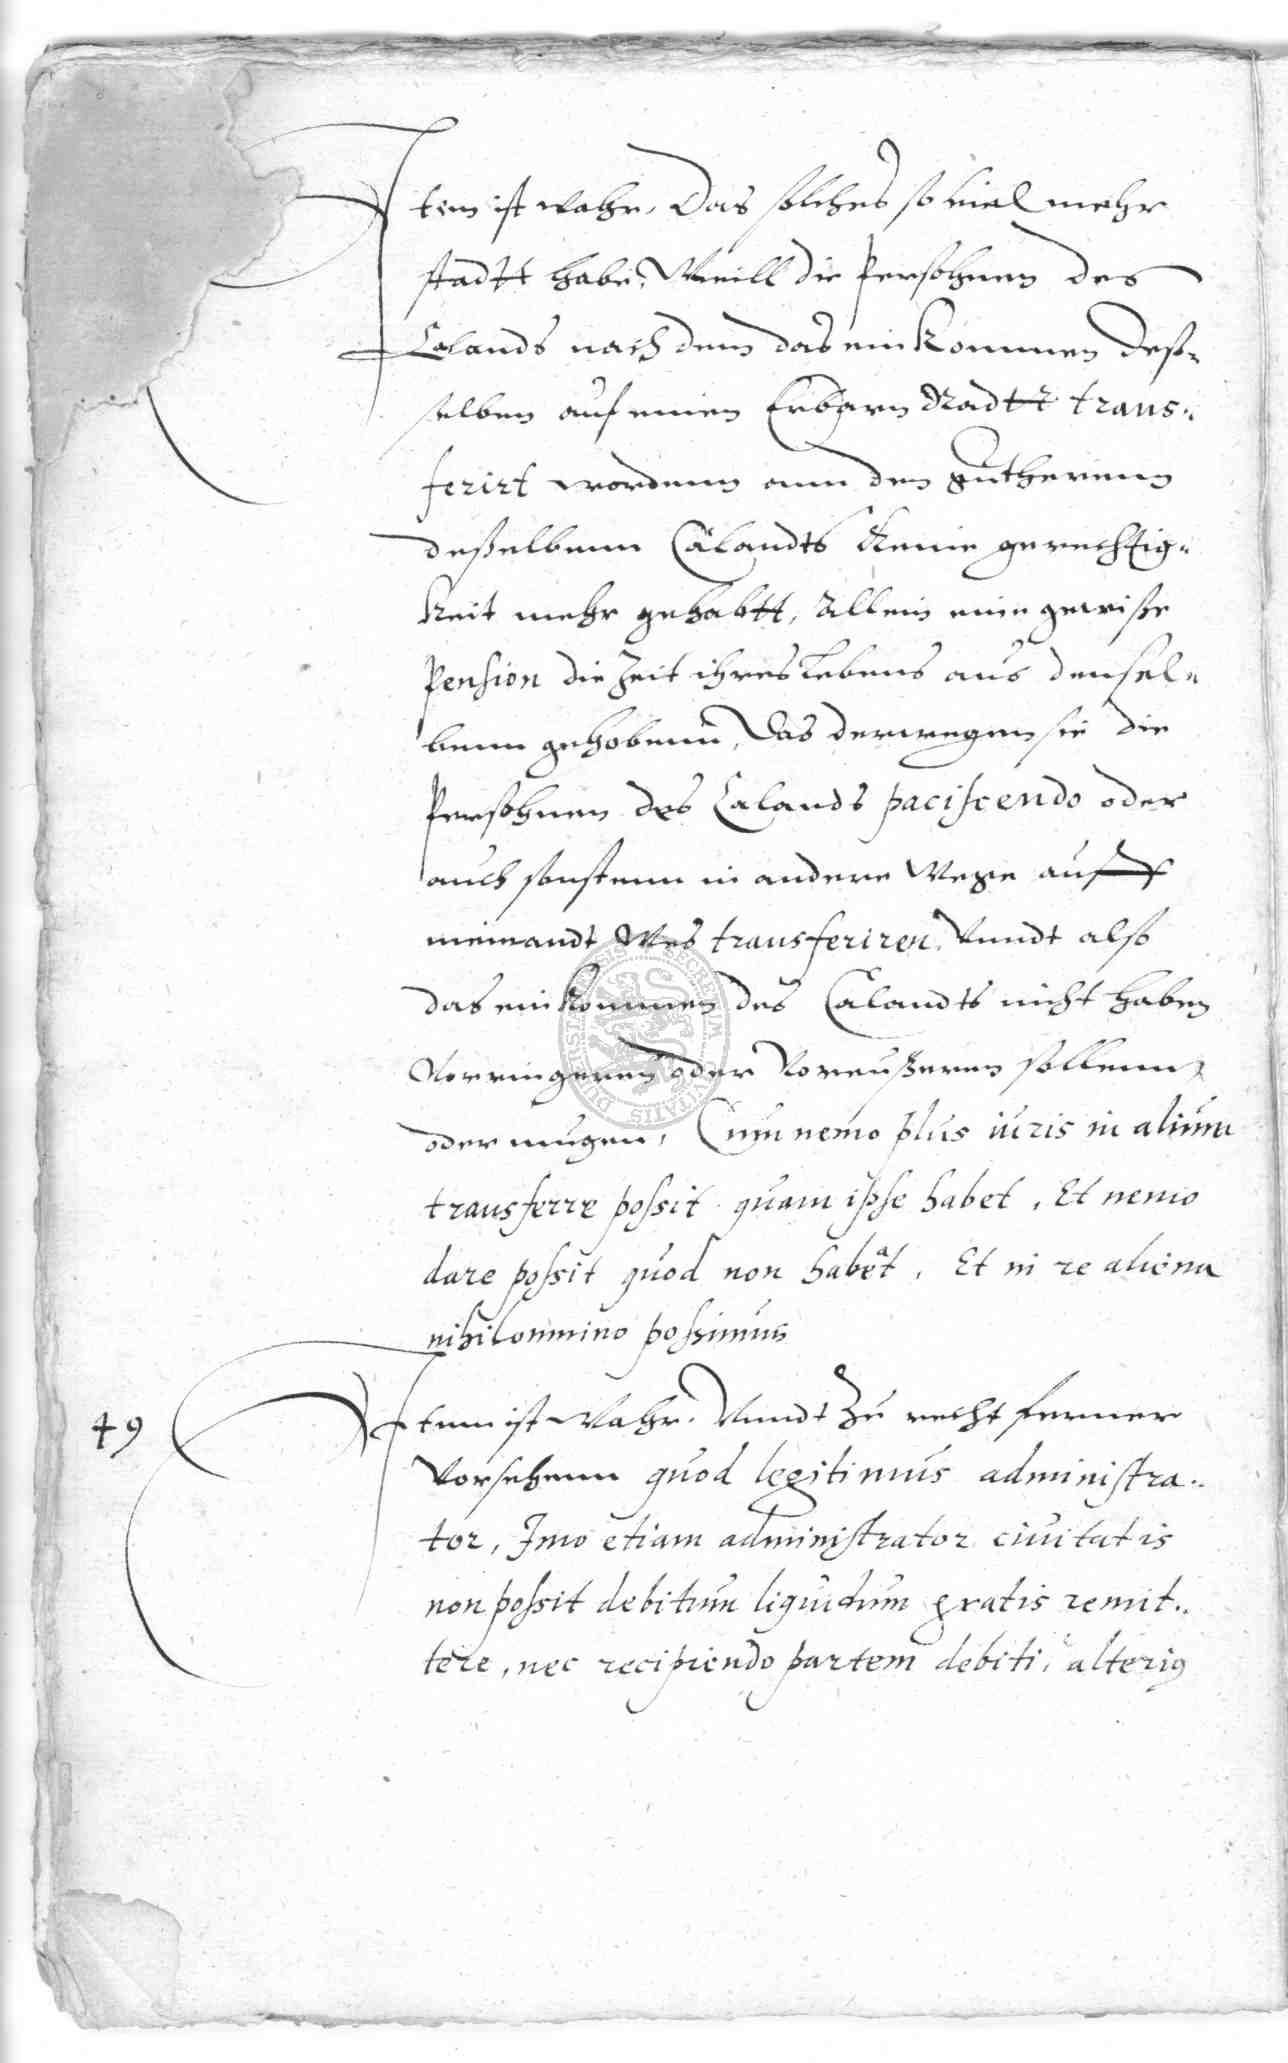 Item ist wahr, Das solches so viel mehr
stadtt habe, Weill die Persohnen des
Calands nach dem das einkommen deß-
selben auf einen Erbarn Radtt trans-
ferirt wordenn ann den guetherenn
deßelbenn Calandts keine gerechtig-
keit mehr gehabtt, Allein eine gewiße
Pension die Zeit ihres Lebens aus densel-
benn gehobenn, Das derwegen sie die
Persohnen des Calands paciscendo oder
auch sonstenn in andere Wege auff
niemandt Wes transferiren, Vnndt also
das einkommen des Calandts nicht haben
Vorringeren oder Voreußeren sollenn
oder mugen, Cum nemo plus iuris in alium
transferre possit quam ipse habet, Et nemo
dare possit quod non habet, Et in re aliena
nihil omnino possimus
49
Itenn ist Wahr, Vnndt Zu recht ferner
Vorsehenn quod legitimus administra-
tor, Imo etiam administrator ciuitatis
non possit debitum liquidum gratis remit-
tere, nec recipiendo partem debiti, alterius